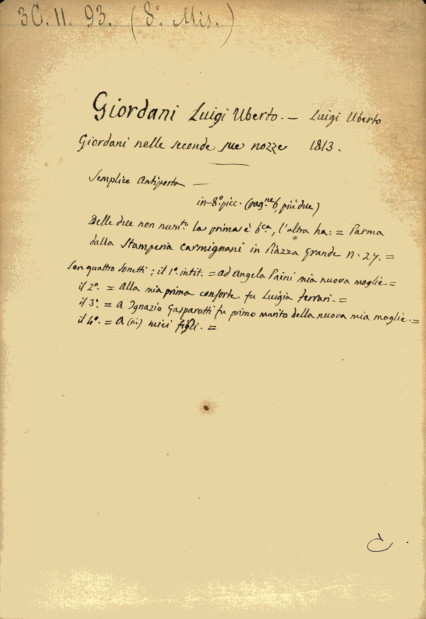 3C.11.93. (8.° Mis.)
Giordani Luigi Uberto. — Luigi Uberto
Giordani nelle seconde sue nozze 1813.
Semplice Antiporta —
in-8.° picc. (pag.ne 6, più due)
Delle due non num.te la prima è b.ca, l'altra ha: = Parma
dalla Stamperia Carmignani in Piazza Grande n. 27. =
Son quattro Sonetti; il 1.° intit. = ad Angela Paini mia nuova moglie. =
il 2.° = Alla mia prima consorte fu Luigia Ferrari. =
il 3.° = A Ignazio Gasparotti fu primo marito della nuova mia moglie. =
il 4.° = A (sic) miei figli. =